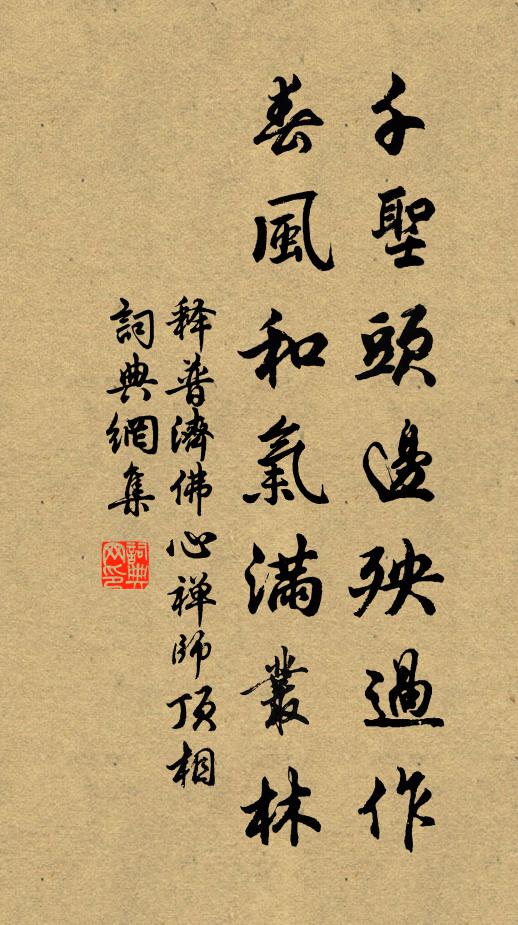 千聖頭邊殃過作
春風和氣滿叢林
释普濟佛心禅師顶相
詞典網集
詞典网印